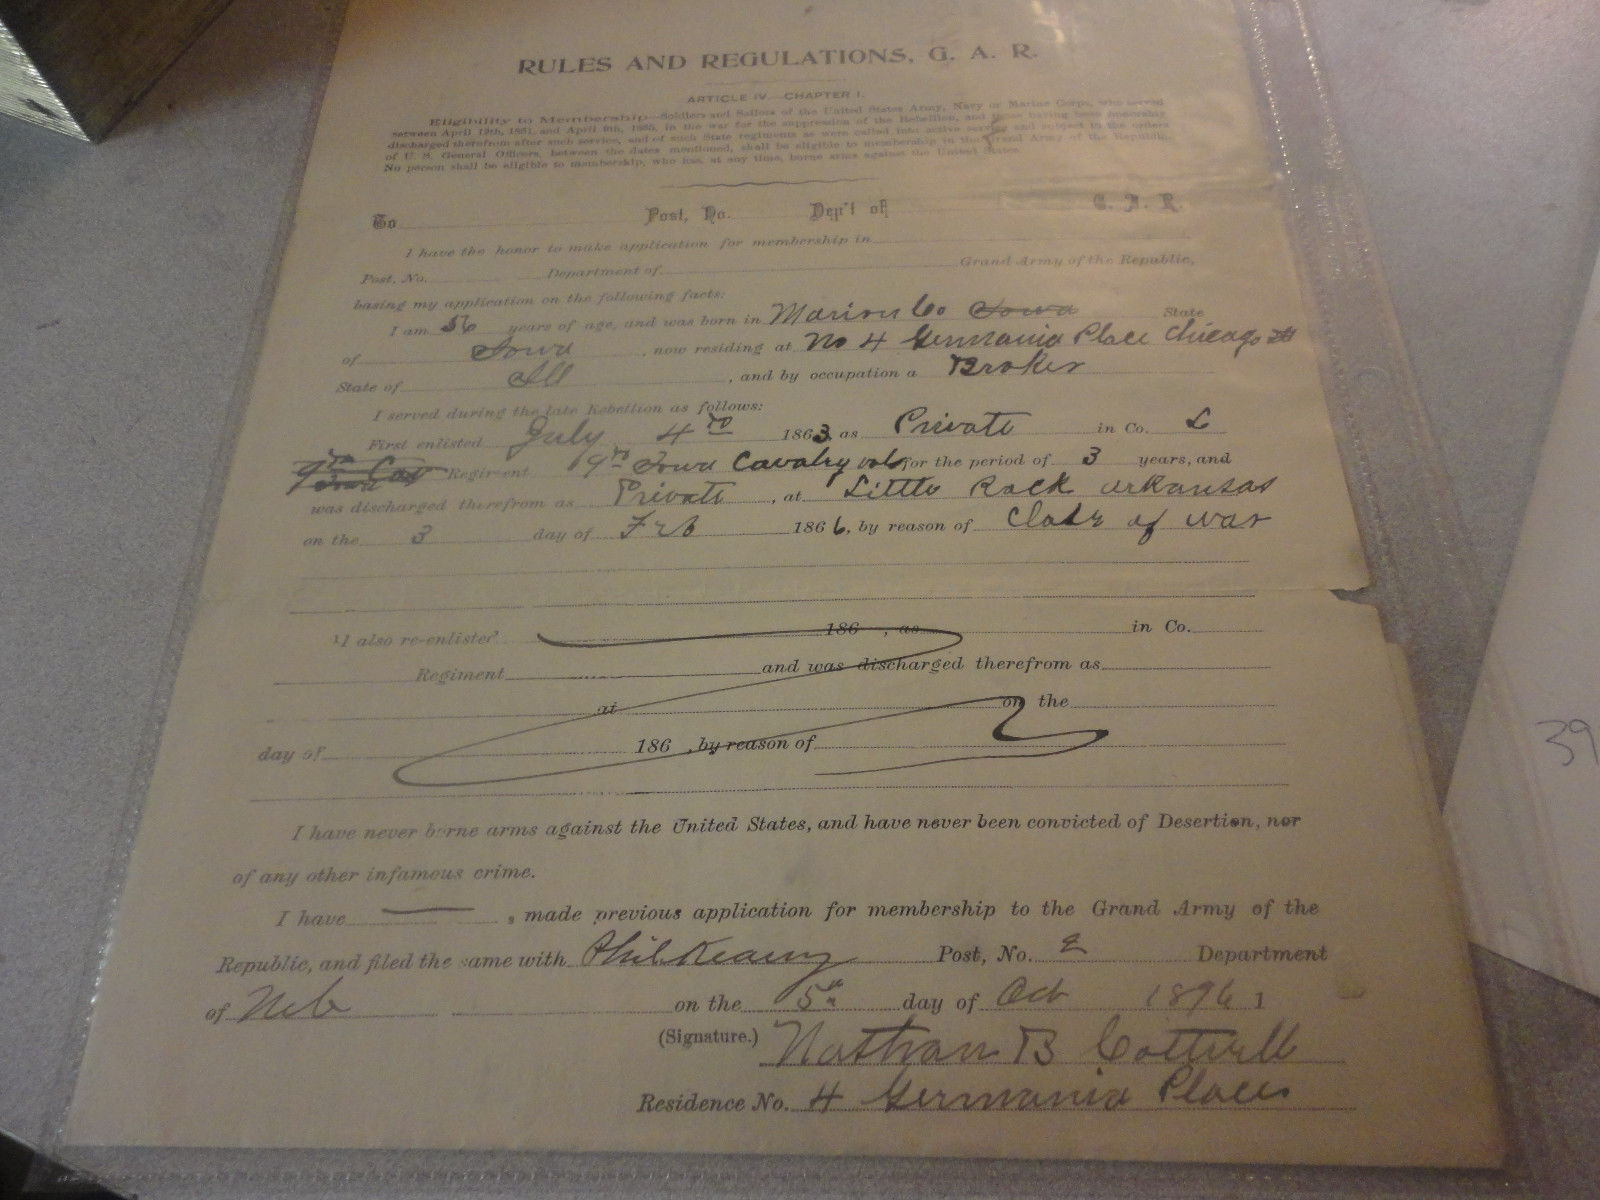 RULES AND REGULATIONS, G. A. R.
ARTICLE IV—CHAPTER I.
Eligibility to Membership—Soldiers and Sailors of the United States Army, Navy or Marine Corps, who served
between April 12th, 1861, and April 9th, 1865, in the war for the suppression of the Rebellion, and those having been honorably
discharged therefrom after such service, and of such State regiments as were called into active service and subject to the orders
of U. S. General Officers, between the dates mentioned, shall be eligible to membership in the Grand Army of the Republic.
No person shall be eligible to membership, who has, at any time, borne arms against the United States.
To Post, No. Dep't of G. A. R.
I have the honor to make application for membership in
Post, No. Department of Grand Army of the Republic,
basing my application on the following facts:
I am 56 years of age, and was born in Marion Co Iowa State
of Iowa, now residing at No 4 Germania Place Chicago Ill
State of Ill, and by occupation a Broker
I served during the late Rebellion as follows:
First enlisted July 4th 1863 as Private in Co. L
9th Iowa Cav Regiment 9th Iowa Cavalry vol for the period of 3 years, and
was discharged therefrom as Private, at Little Rock Arkansas
on the 3 day of Feb 1866, by reason of Close of war
I also re-enlisted 186 , as in Co.
Regiment and was discharged therefrom as
at on the
day of 186 , by reason of
I have never borne arms against the United States, and have never been convicted of Desertion, nor
of any other infamous crime.
I have — , made previous application for membership to the Grand Army of the
Republic, and filed the same with Phil Kearny Post, No. 2 Department
of Neb on the 5th day of Oct 1896 1
(Signature.) Nathan B Cottrell
Residence No. 4 Germania Place
39